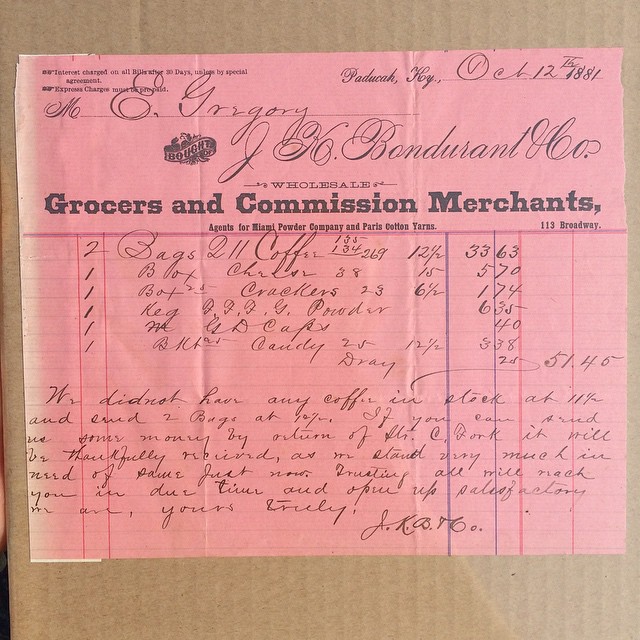 Interest charged on all Bills after 30 Days, unless by special
agreement.
Express Charges must be prepaid.
Paducah, Ky., Oct. 12 th 1881
M E. Gregory
BOUGHT
J. K. Bondurant & Co.
WHOLESALE
Grocers and Commission Merchants,
Agents for Miami Powder Company and Paris Cotton Yarns.
113 Broadway.
2 Bags 211 Coffee 135 134 269 12½ 33 63
1 Box Cheese 38 15 5 70
1 Box 25 Crackers 23 6½ 1 74
1 Keg F.F.F.G. Powder 6 35
1 M G D Caps 40
1 Bkt 25 Candy 25 12½ 3 38
Dray 25 51.45
We didnot have any coffee in stock at 11½
and send 2 Bags at 12½. If you can send
us some money by return of Str. C. Fork it will
be thankfully recieved, as we stand very much in
need of same just now. Trusting all will reach
you in due time and open up satisfactory
we are, yours truly,
J.K.B. & Co.